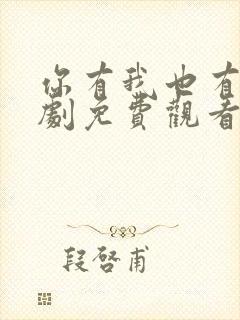 你有我也有
劇免費觀看
段啓甫